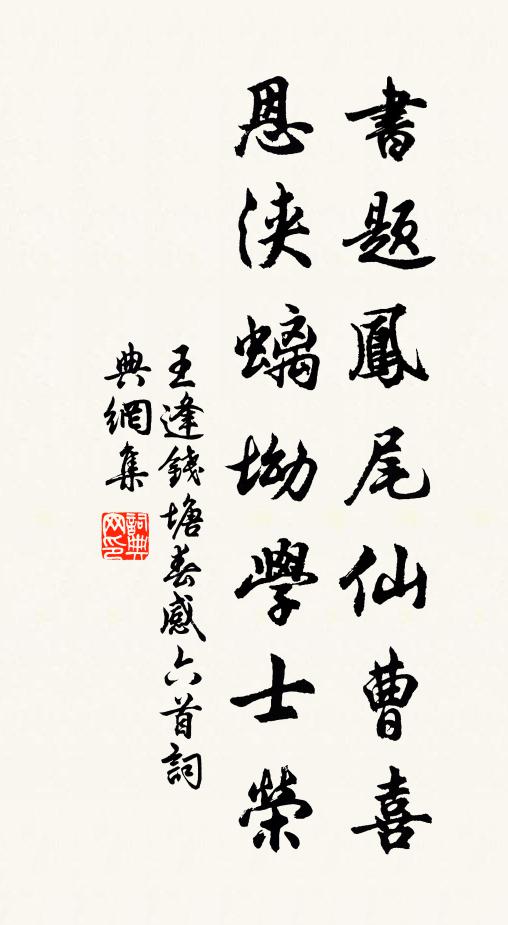 書題鳳尾仙曹喜
恩浹螭坳學士榮
王逢錢塘春感六首詞
典網集
詞典
网印